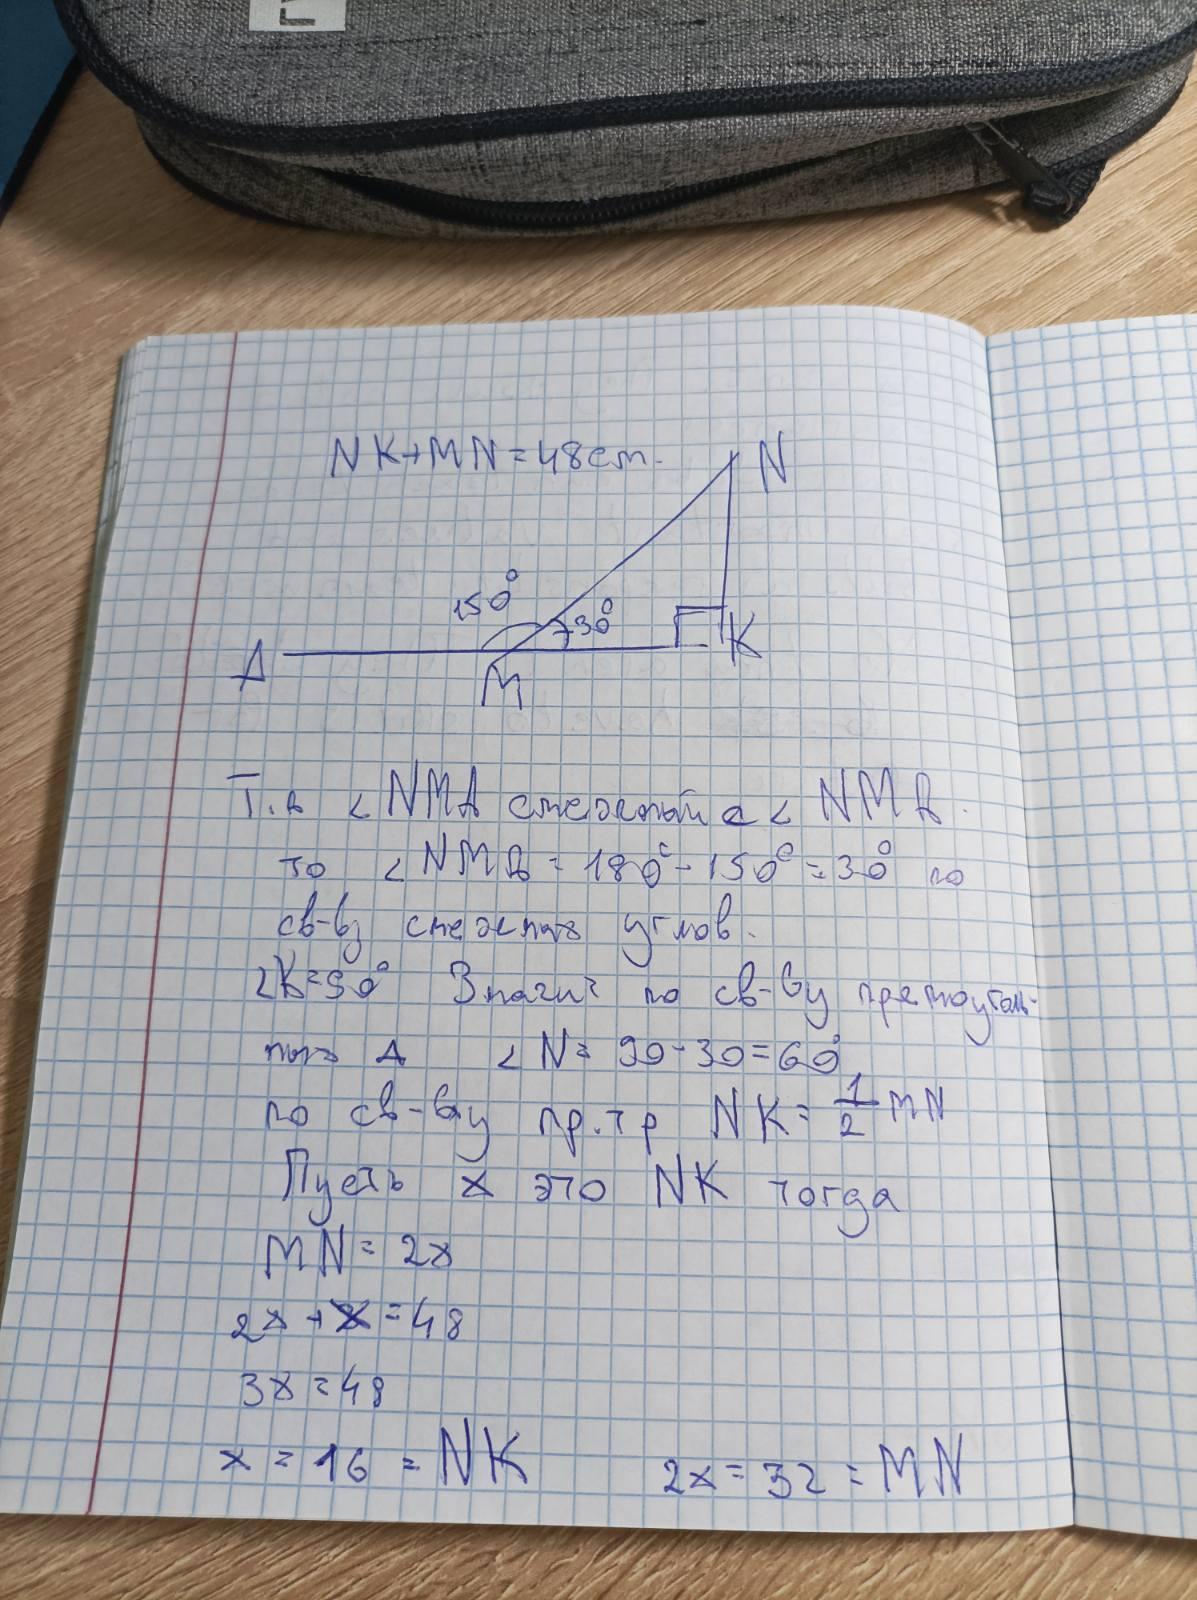 NK+MN=48см.
N
150°
30°
K
A
M
Т.к <NMA смежный с < NMK.
то <NMK=180°-150°=30° по
св-ву смежных углов.
<K=90° Значит по св-ву прямоуголь-
ного Δ <N=90-30=60°
по св-ву пр.тр NK=1/2 MN
Пусть x это NK тогда
MN=2x
2x+x=48
3x=48
x=16=NK 2x=32=MN